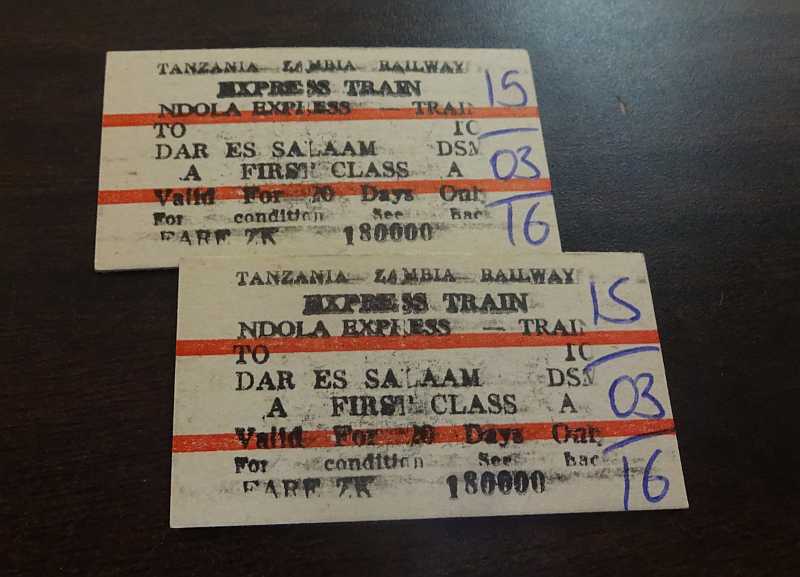 TANZANIA ZAMBIA RAILWAY
EXPRESS TRAIN
NDOLA EXPRESS — TRAIN
TO
DAR ES SALAAM DSM
A FIRST CLASS A
Valid For 20 Days Only
For condition See bac
FARE ZK 180000
15
03
16
TANZANIA ZAMBIA RAILWAY
EXPRESS TRAIN
NDOLA EXPRESS — TRAIN
TO
DAR ES SALAAM DSM
A FIRST CLASS A
Valid For 20 Days Only
For condition See bac
FARE ZK 180000
15
03
16